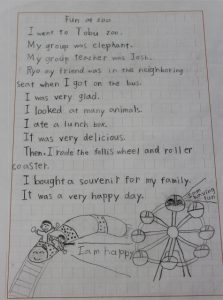 Fun at zoo
I went to Tobu zoo.
My group was elephant.
My group teacher was Josh.
Ryo my friend was in the neighboring
seat when I got on the bus.
I was very glad.
I looked at many animals.
I ate a lunch box.
It was very delicious.
Then. I rode the fellis wheel and roller
coaster.
I bought a souvenir for my family.
It was a very happy day.
I am happy
I am having fun